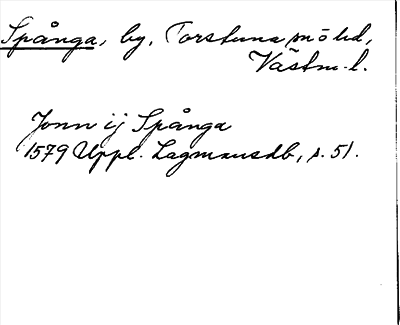 Spånga, by, Torstuna sn o hd,
Västm. l.
Jonn ij Spånga
1579 Uppl. Lagmansdb, s. 51.